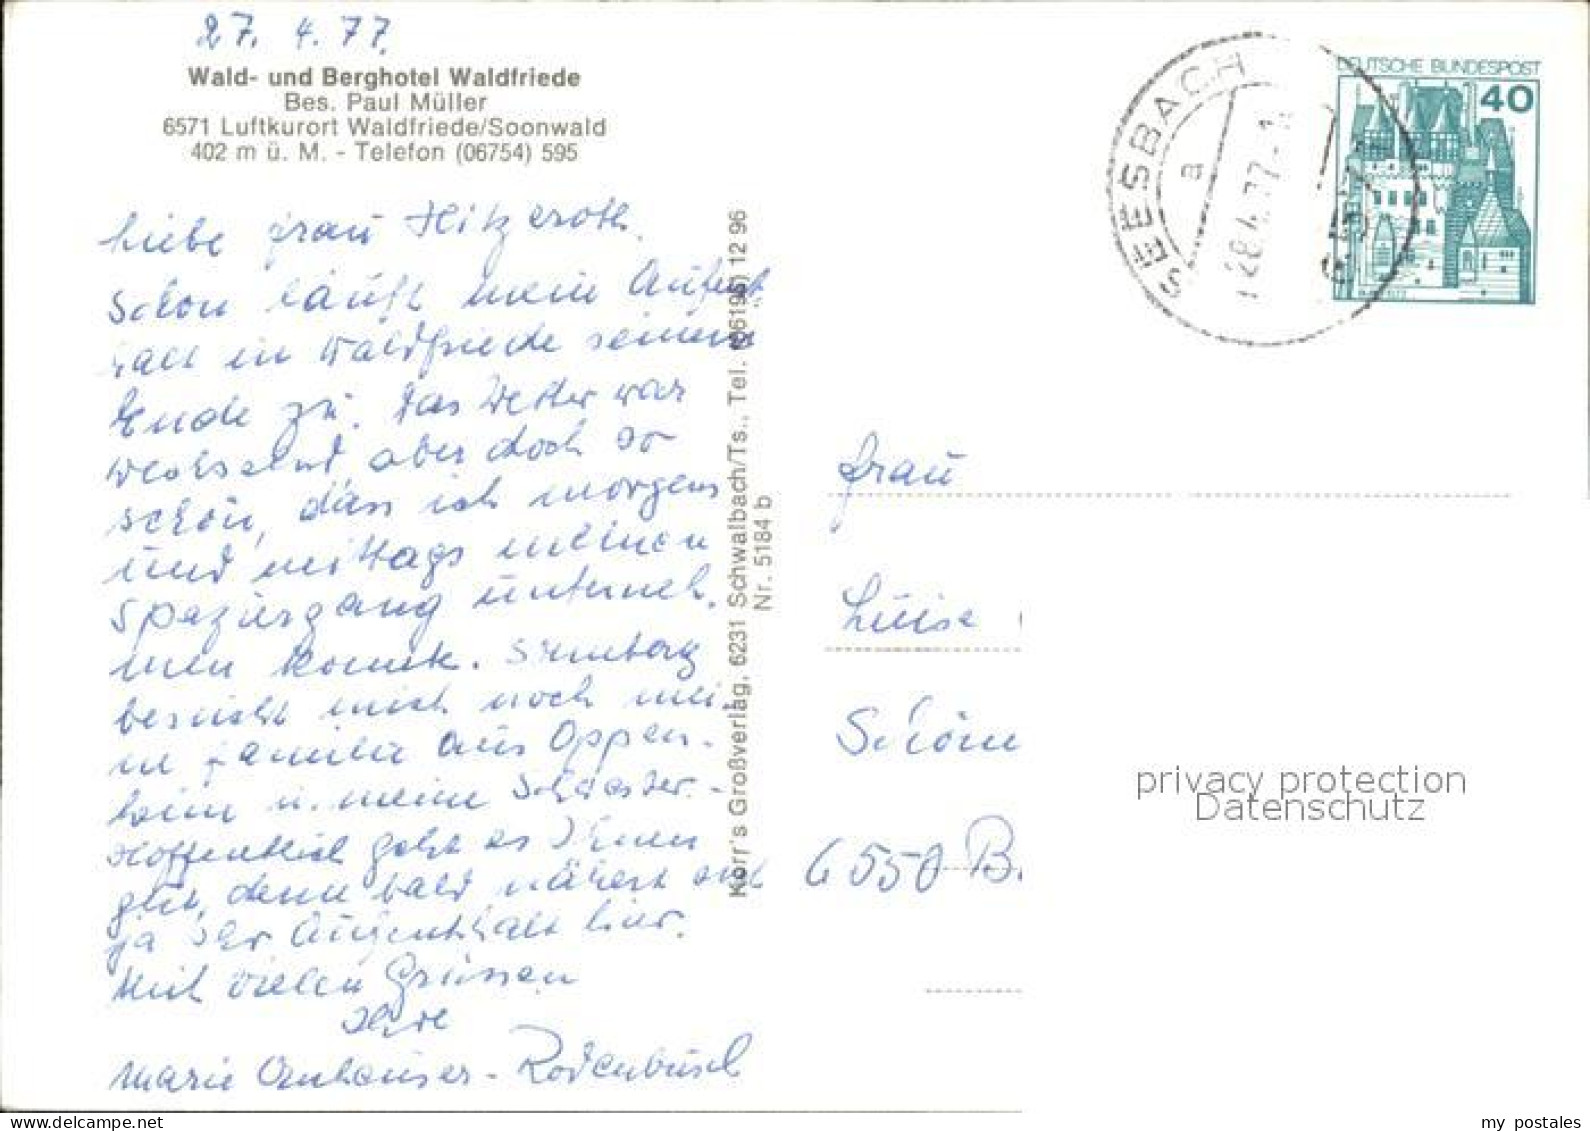 27. 4. 77.
Wald- und Berghotel Waldfriede
Bes. Paul Müller
6571 Luftkurort Waldfriede/Soonwald
402 m ü. M. - Telefon (06754) 595
Liebe Frau Hitzeroth.
Schon läuft mein Aufent
halt in Waldfriede seinem
Ende zu. Das Wetter war
wechselnd aber doch so
schön, dass ich morgens
und mittags meinen
Spaziergang unterneh.
men konnte. Samstag
besucht mich noch mei
ne Familie aus Oppen-
heim u. meine Schwester.-
Hoffentlich geht es Ihnen
gut, denn bald nähert sich
ja Ihr Aufenthalt hier.
Mit vielen Grüssen
Ihre
Marie - Rodenbusch
Korr's Großverlag, 6231 Schwalbach/Ts., Tel. (06196) 12 96
Nr. 5184 b
SEESBACH
a
28.4.77-1
DEUTSCHE BUNDESPOST
40
Frau
Luise
Schöne
6550 B.
privacy protection
Datenschutz
my postales